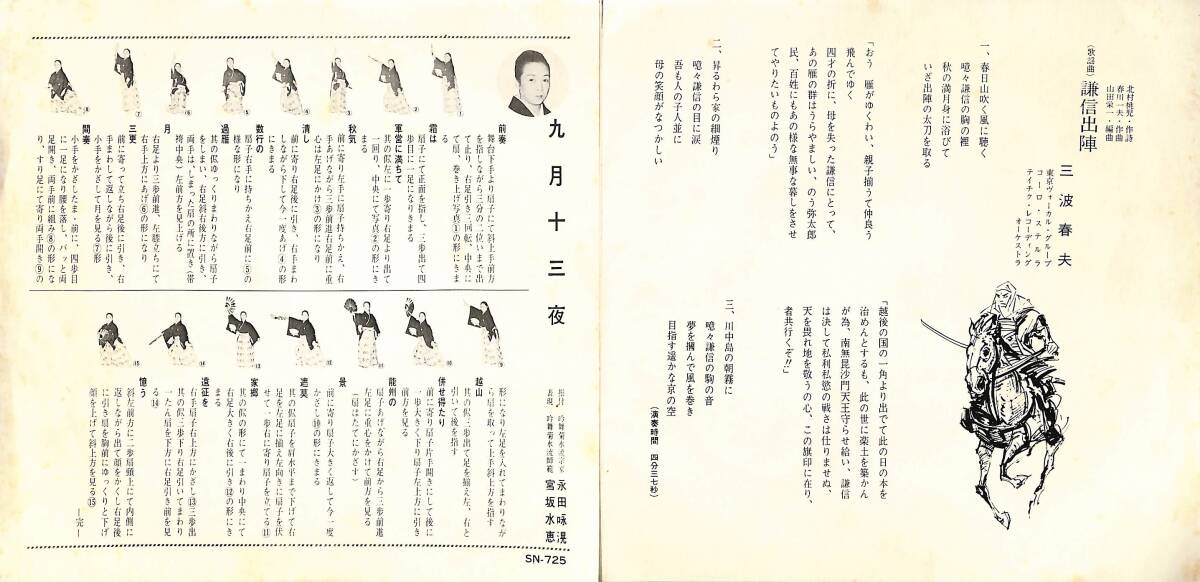 (歌謡曲)
謙信出陣
北村桃児・作詩
春川一夫・作曲
山田栄一・編曲
三波春夫
東京ヴォーカル・グループ
コーロ・ステルラ
テイチク・レコーディング
オーケストラ
一、春日山吹く風に聴く
噫々謙信の胸の裡
秋の満月身に浴びて
いざ出陣の太刀を取る
「おう　雁がゆくわい、親子揃うて仲良う
飛んでゆく
四才の折に、母を失った謙信にとって、
あの雁の群はうらやましい、のう弥太郎
民、百姓にもあの様な無事な暮しをさせ
てやりたいものよのう」
二、昇るわら家の細煙り
噫々謙信の目に涙
吾も人の子人並に
母の笑顔がなつかしい
「越後の国の一角より出でて此の日の本を
治めんとするも、此の世に楽土を築かん
が為、南無毘沙門天王守らせ給い、謙信
は決して私利私慾の戦さは仕りませぬ、
天を畏れ地を敬う の心、この旗印に在り、
者共行くぞ!!」
三、川中島の朝霧に
噫々謙信の駒の音
夢を擁んで風を巻き
目指す遥かな京の空
(演奏時間　四分三七秒)
九月十三夜
前奏
舞台下手より扇子にて斜上手前方
を指しながら三分の二位いまで出
て止り、右足引き三回転、中央に
て扇、巻き上げ写真①の形にきま
る
霜は
扇子にて正面を指し、三歩出て四
歩目に一足になりきまる
軍営に満ちて
其の似左に一歩寄り右足より出て
一回り、中央にて写真②の形にき
まる
秋気
前に寄り左手に扇子持ちかえ、右
手あげながら三歩前進右足前に重
心は左足にかけ③の形になり
清し
前に寄り右足後に引き、右手まわ
しながら下して今一度あげ④の形
にきまる
数行の
扇子右手に持ちかえ右足前に⑤の
様な形になり
過雁
其の似ゆっくりまわりながら扇子
をしまい、右足斜右後方に引き、
両手は、しまった扇の所に置き(帯
袴中央)左前方を見上げる
月
右足より三歩前進、左膝立ちにて
右手上方にあげ⑥の形になり
三更
前に寄って立ち右足後に引き、右
手まわして返しながら後に引き、
小手をかざして月を見る⑦形
間奏
小手をかざしたまゝ前に、四歩目
に一足になり腰を落し、パッと両
足開き、両手前に組み⑧の形にな
り、すり足にて寄り両手開き⑨の
① ② ③ ④ ⑤ ⑥ ⑦ ⑧
形になり左足を入れてまわりなが
ら扇を取って上手斜上方を指す
越山
其の似三歩出て足を揃え左、右と
引いて後を指す
併せ得たり
前に寄り扇子片手開きにして後に
一歩大きく下り扇子左上方に引き
前方を見る
能州の
扇子あげながら右足から三歩前進
左足に重心をかけて前方を見る
(扇はたてにかざす)
景
前に寄り扇子大きく返して今一度
かざし⑩の形にきまる
遮莫
其の似扇子を肩水平まで下げて右
足を左足に揃え左向きに扇子を伏
せて一歩右に寄り扇子を立てる⑪
家郷
其の似の形にて一まわり中央にて
右足大きく右後に引き⑫の形にき
まる
遠征を
右手扇子右上方にかざし⑬三歩出
其の似三歩下り右足引いてまわり
一たん扇を下方に右足引き前を見
る⑭
憶う
斜左前方に二歩扇頭上にて内側に
返しながら出て顔をかくし右足後
に引き扇を胸前にゆっくりと下げ
顔を上げて斜上方を見る⑮
―完―
⑨ ⑩ ⑪ ⑫ ⑬ ⑭ ⑮
振付、吟舞菊水流宗家　永田咏滉
表現、吟舞菊水流師範　宮坂水恵
SN-725